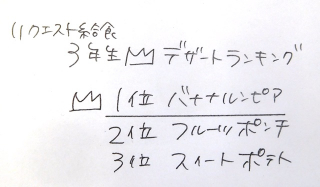 リクエスト給食
3年生 デザートランキング
1位 バナナルンピア
2位 フルーツポンチ
3位 スイートポテト